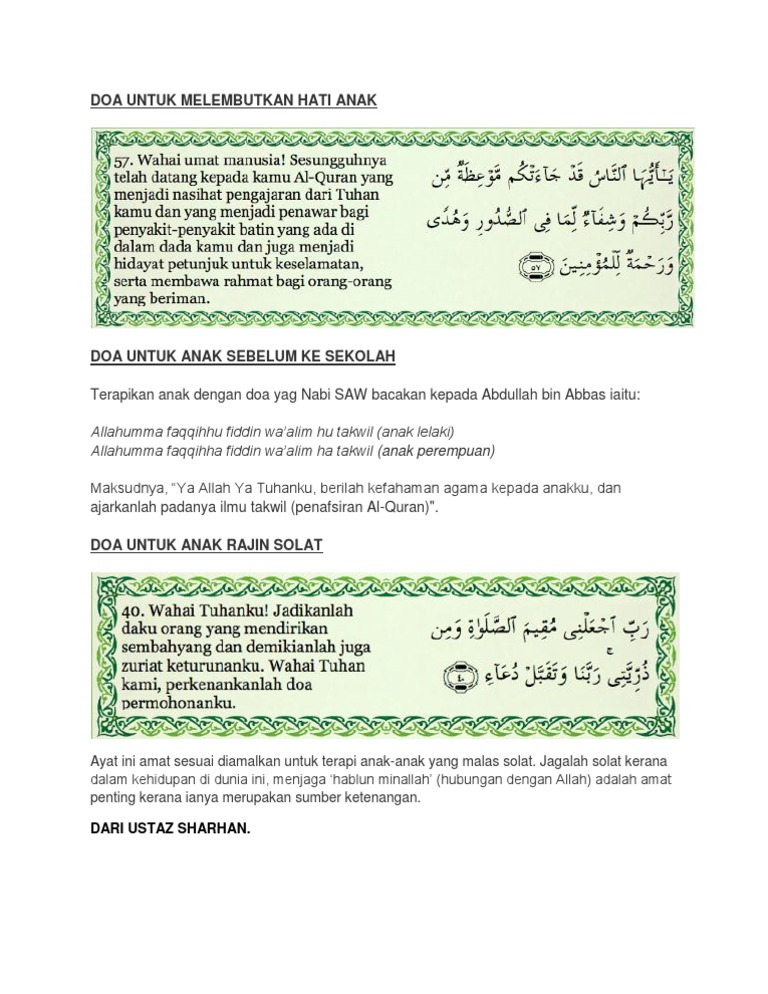 DOA UNTUK MELEMBUTKAN HATI ANAK
57. Wahai umat manusia! Sesungguhnya
telah datang kepada kamu Al-Quran yang
menjadi nasihat pengajaran dari Tuhan
kamu dan yang menjadi penawar bagi
penyakit-penyakit batin yang ada di
dalam dada kamu dan juga menjadi
hidayat petunjuk untuk keselamatan,
serta membawa rahmat bagi orang-orang
yang beriman.
يَـٰٓأَيُّهَا ٱلنَّاسُ قَدْ جَآءَتْكُم مَّوْعِظَةٌ مِّن
رَّبِّكُمْ وَشِفَآءٌ لِّمَا فِى ٱلصُّدُورِ وَهُدًى
وَرَحْمَةٌ لِّلْمُؤْمِنِينَ ٥٧
DOA UNTUK ANAK SEBELUM KE SEKOLAH
Terapikan anak dengan doa yag Nabi SAW bacakan kepada Abdullah bin Abbas iaitu:
Allahumma faqqihhu fiddin wa'alim hu takwil (anak lelaki)
Allahumma faqqihha fiddin wa'alim ha takwil (anak perempuan)
Maksudnya, “Ya Allah Ya Tuhanku, berilah kefahaman agama kepada anakku, dan
ajarkanlah padanya ilmu takwil (penafsiran Al-Quran)".
DOA UNTUK ANAK RAJIN SOLAT
40. Wahai Tuhanku! Jadikanlah
daku orang yang mendirikan
sembahyang dan demikianlah juga
zuriat keturunanku. Wahai Tuhan
kami, perkenankanlah doa
permohonanku.
رَبِّ ٱجْعَلْنِى مُقِيمَ ٱلصَّلَوٰةِ وَمِن
ذُرِّيَّتِى ۚ رَبَّنَا وَتَقَبَّلْ دُعَآءِ ٤٠
Ayat ini amat sesuai diamalkan untuk terapi anak-anak yang malas solat. Jagalah solat kerana
dalam kehidupan di dunia ini, menjaga ‘hablun minallah’ (hubungan dengan Allah) adalah amat
penting kerana ianya merupakan sumber ketenangan.
DARI USTAZ SHARHAN.